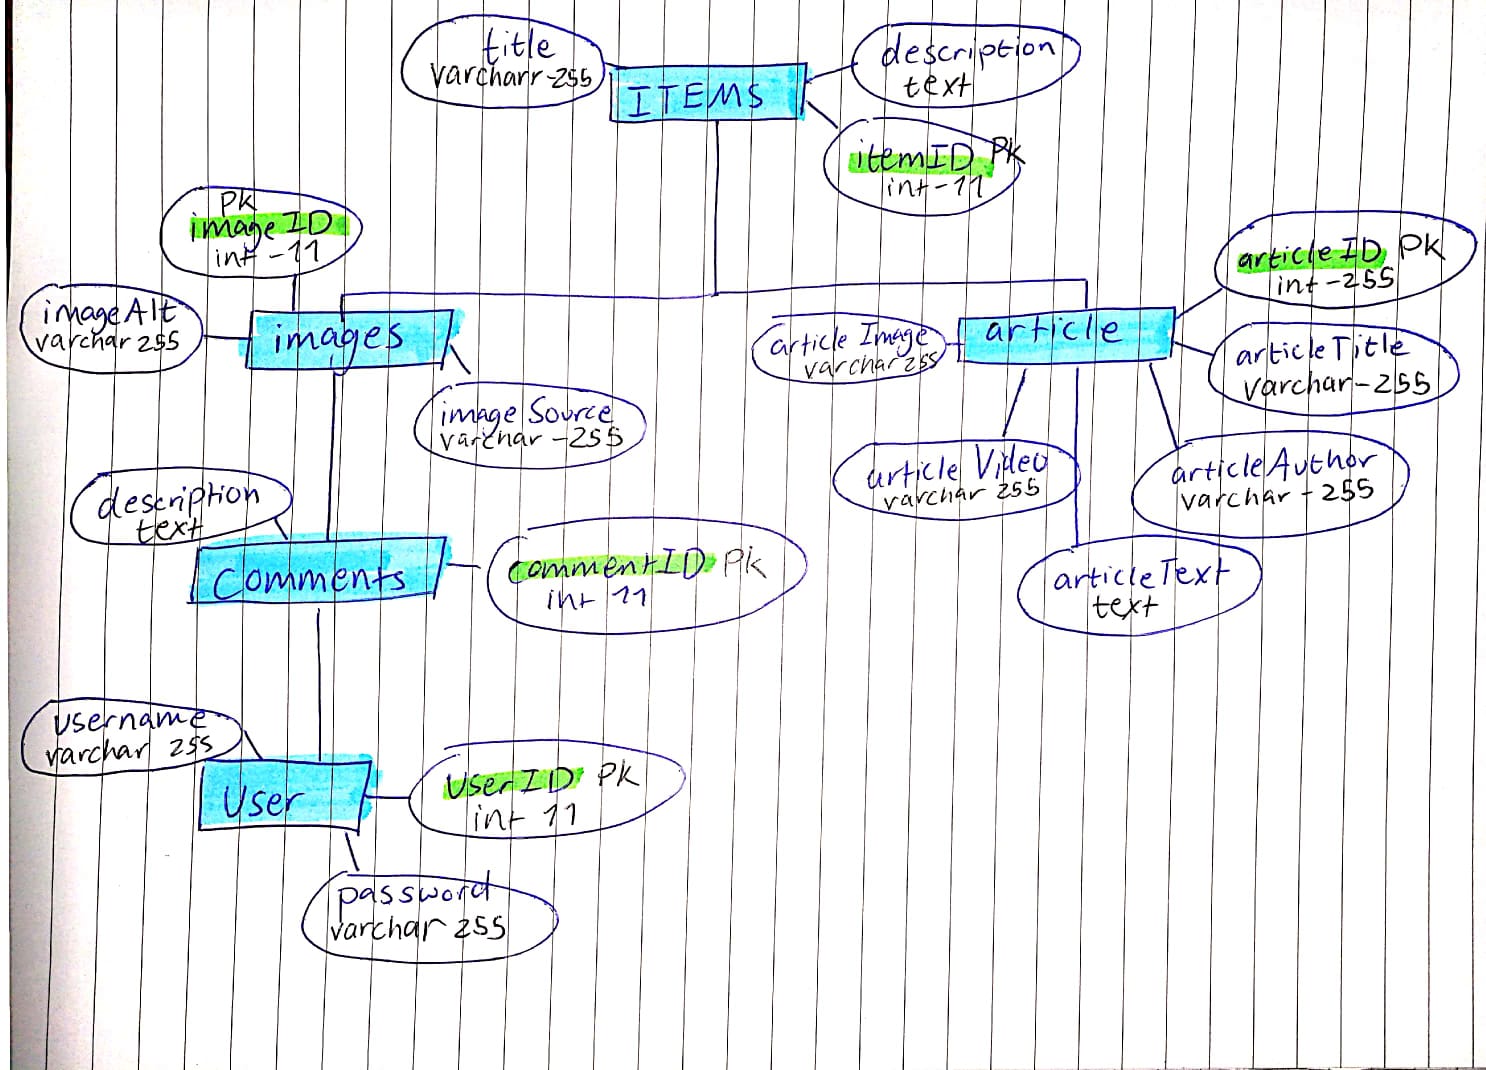 title
varcharr-255
ITEMS
description
text
itemID PK
int-11
PK
imageID
int-11
imageAlt
varchar 255
images
image Source
varchar -255
article Image
varchar 255
article
articleID PK
int-255
articleTitle
varchar-255
article Video
varchar 255
articleAuthor
varchar - 255
articleText
text
description
text
Comments
commentID PK
int 11
username
varchar 255
User
UserID PK
int 11
password
varchar 255